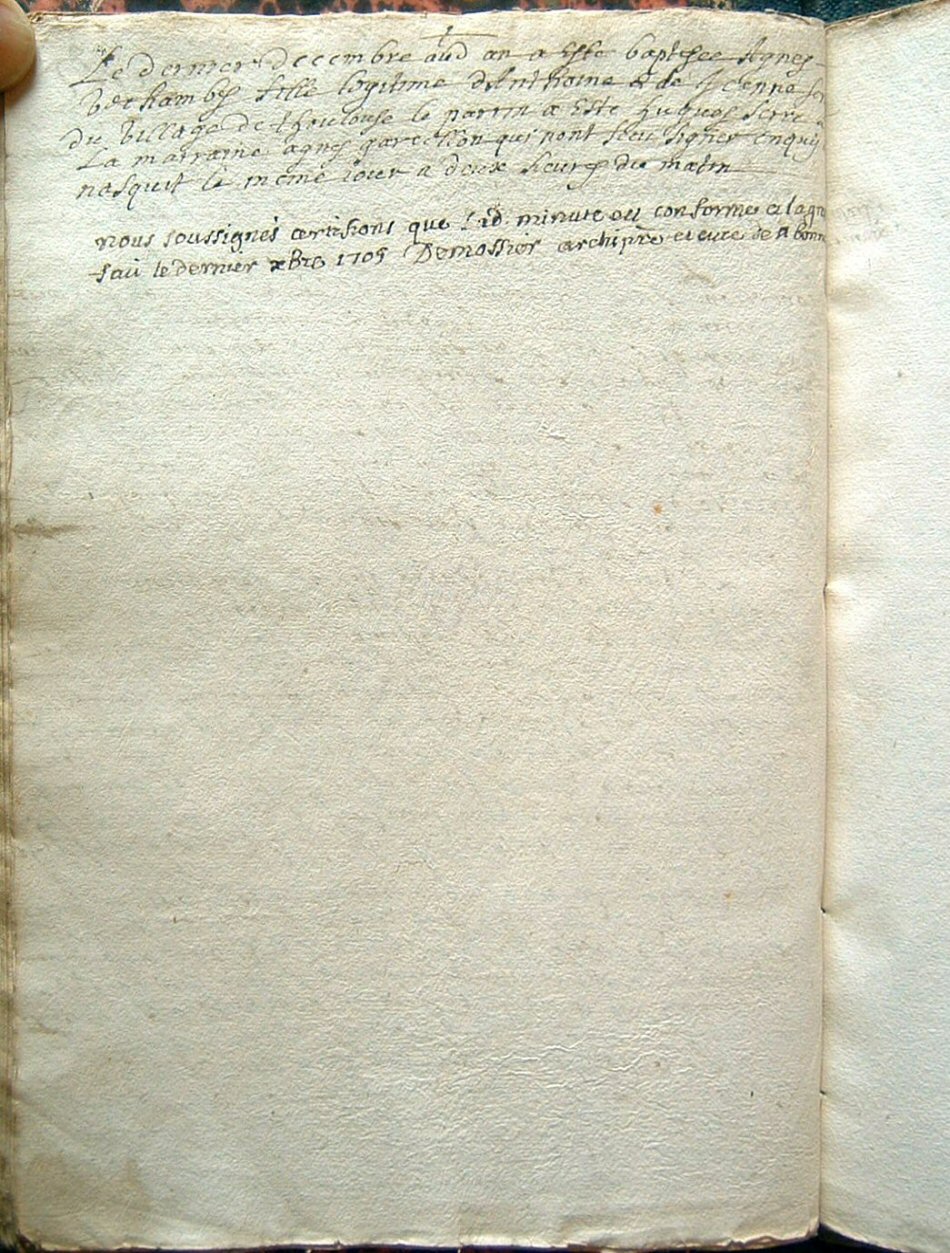 Le dernier decembre aud an a esté baptisee Agnes
fille legitime d'Anthoine & de
du village de thoulouse le parrin a esté hugues serre
La marraine agnes qui n'ont sceu signer enquis
nasquit le meme iour a deux heures du matin
nous soussignés certifions que la d. minute est conforme a la
fait le dernier xbre 1705 Demossier archiprê et curé de